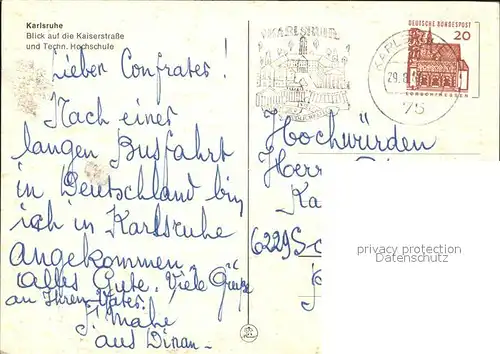 Karlsruhe
Blick auf die Kaiserstraße
und Techn. Hochschule
Lieber Confrater!
Nach einer
langen Busfahrt
in Deutschland bin
ich in Karlsruhe
angekommen.
Alles Gute. Viele Grüße
an Ihren Vater.
J. Mahe
aus Dinan_
KARLSRUHE
DEUTSCHE BUNDESPOST
20
LORSCH/HESSEN
29.8.
75
Hochwürden
Herr
Ka
6229 S
privacy protection
Datenschutz